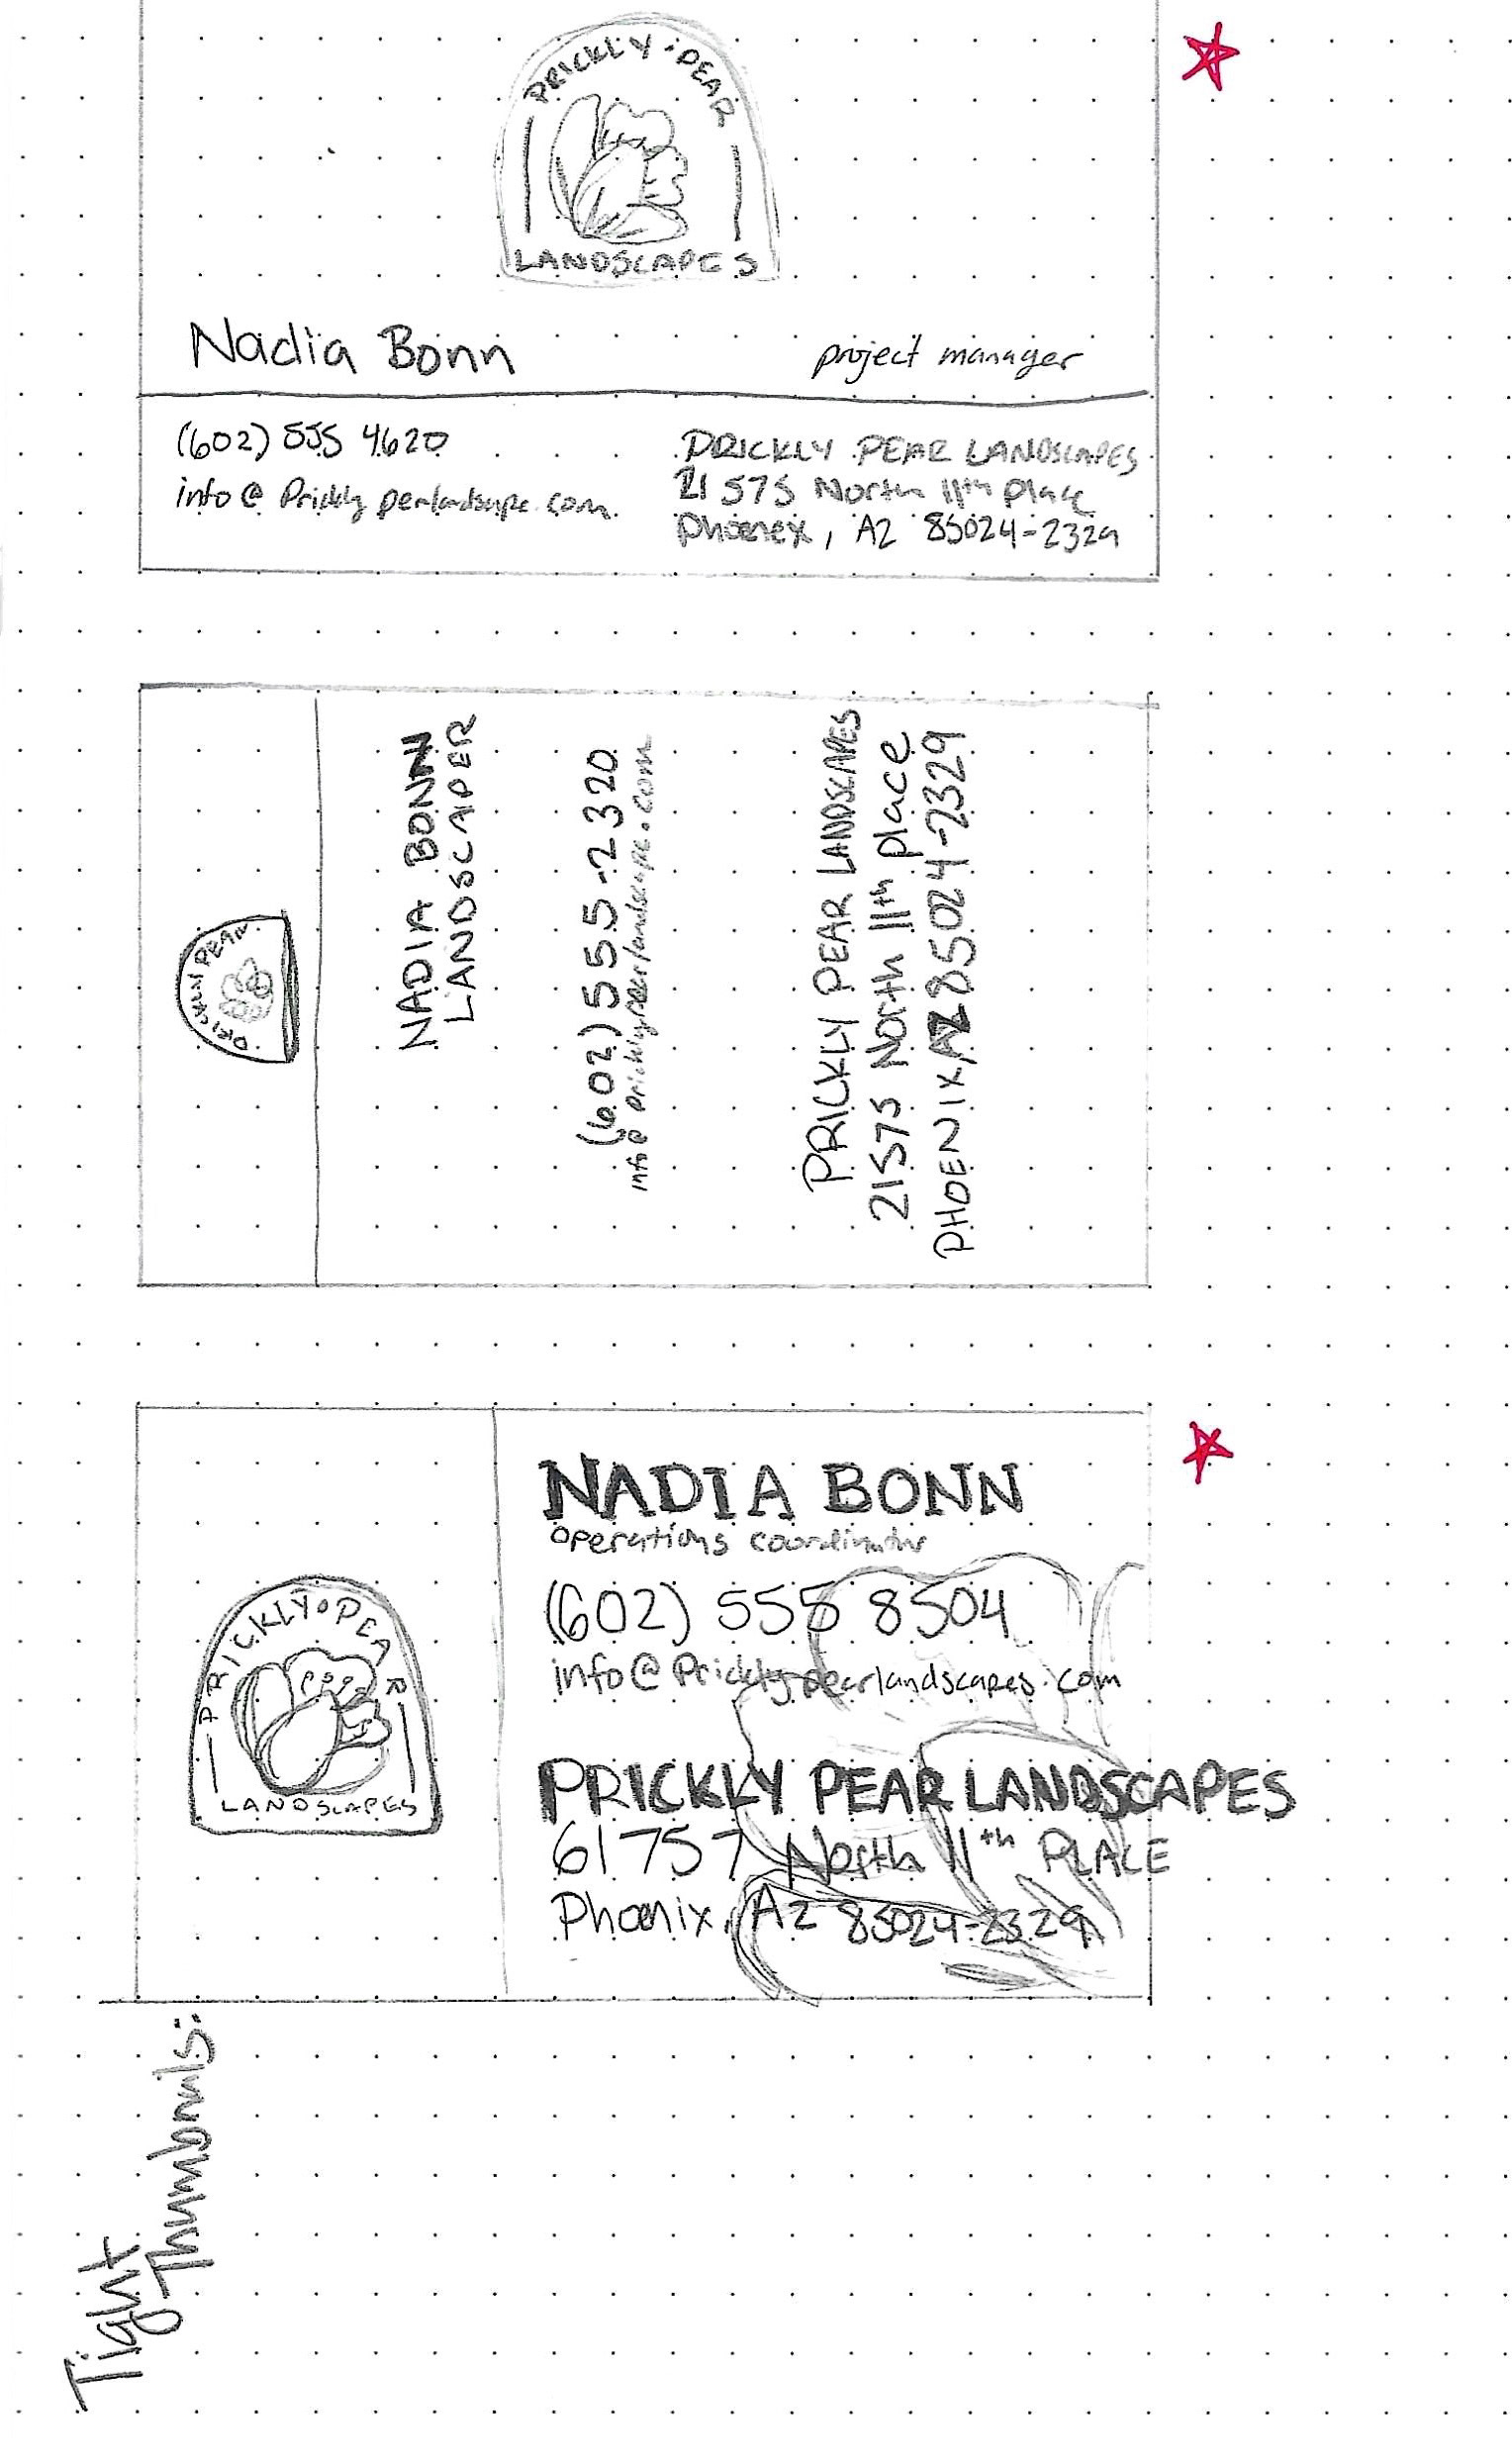 PRICKLY · PEAR
LANDSCAPES
Nadia Bonn
project manager
(602) 555 4620
info@Pricklypearlandscape.com
PRICKLY PEAR LANDSCAPES
21575 North 11th Place
Phoenex, AZ 85024-2329
PRICKLY PEAR
NADIA BONN
LANDSCAPER
(602) 555-2320
info@pricklypearlandscape.com
PRICKLY PEAR LANDSCAPES
21575 North 11th place
PHOENIX, AZ 85024-2329
PRICKLY · PEAR
LANDSCAPES
NADIA BONN
operations coordinator
(602) 555 8504
info@Pricklypearlandscapes.com
PRICKLY PEAR LANDSCAPES
61757 North 11th PLACE
Phoenix, AZ 85024-2329
Tight
Thumbnails: